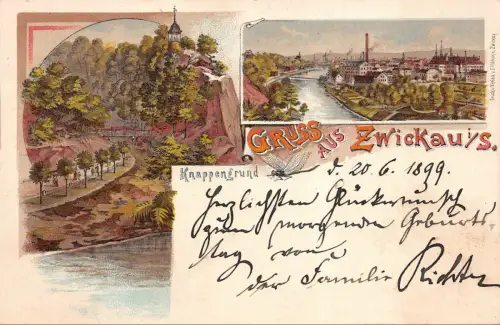 Gruss aus Zwickau i/S.
Knappengrund
d. 20.6.1899.
Herzlichsten Glückwunsch
zum morgenden Geburts-
tag von
der Familie Richter